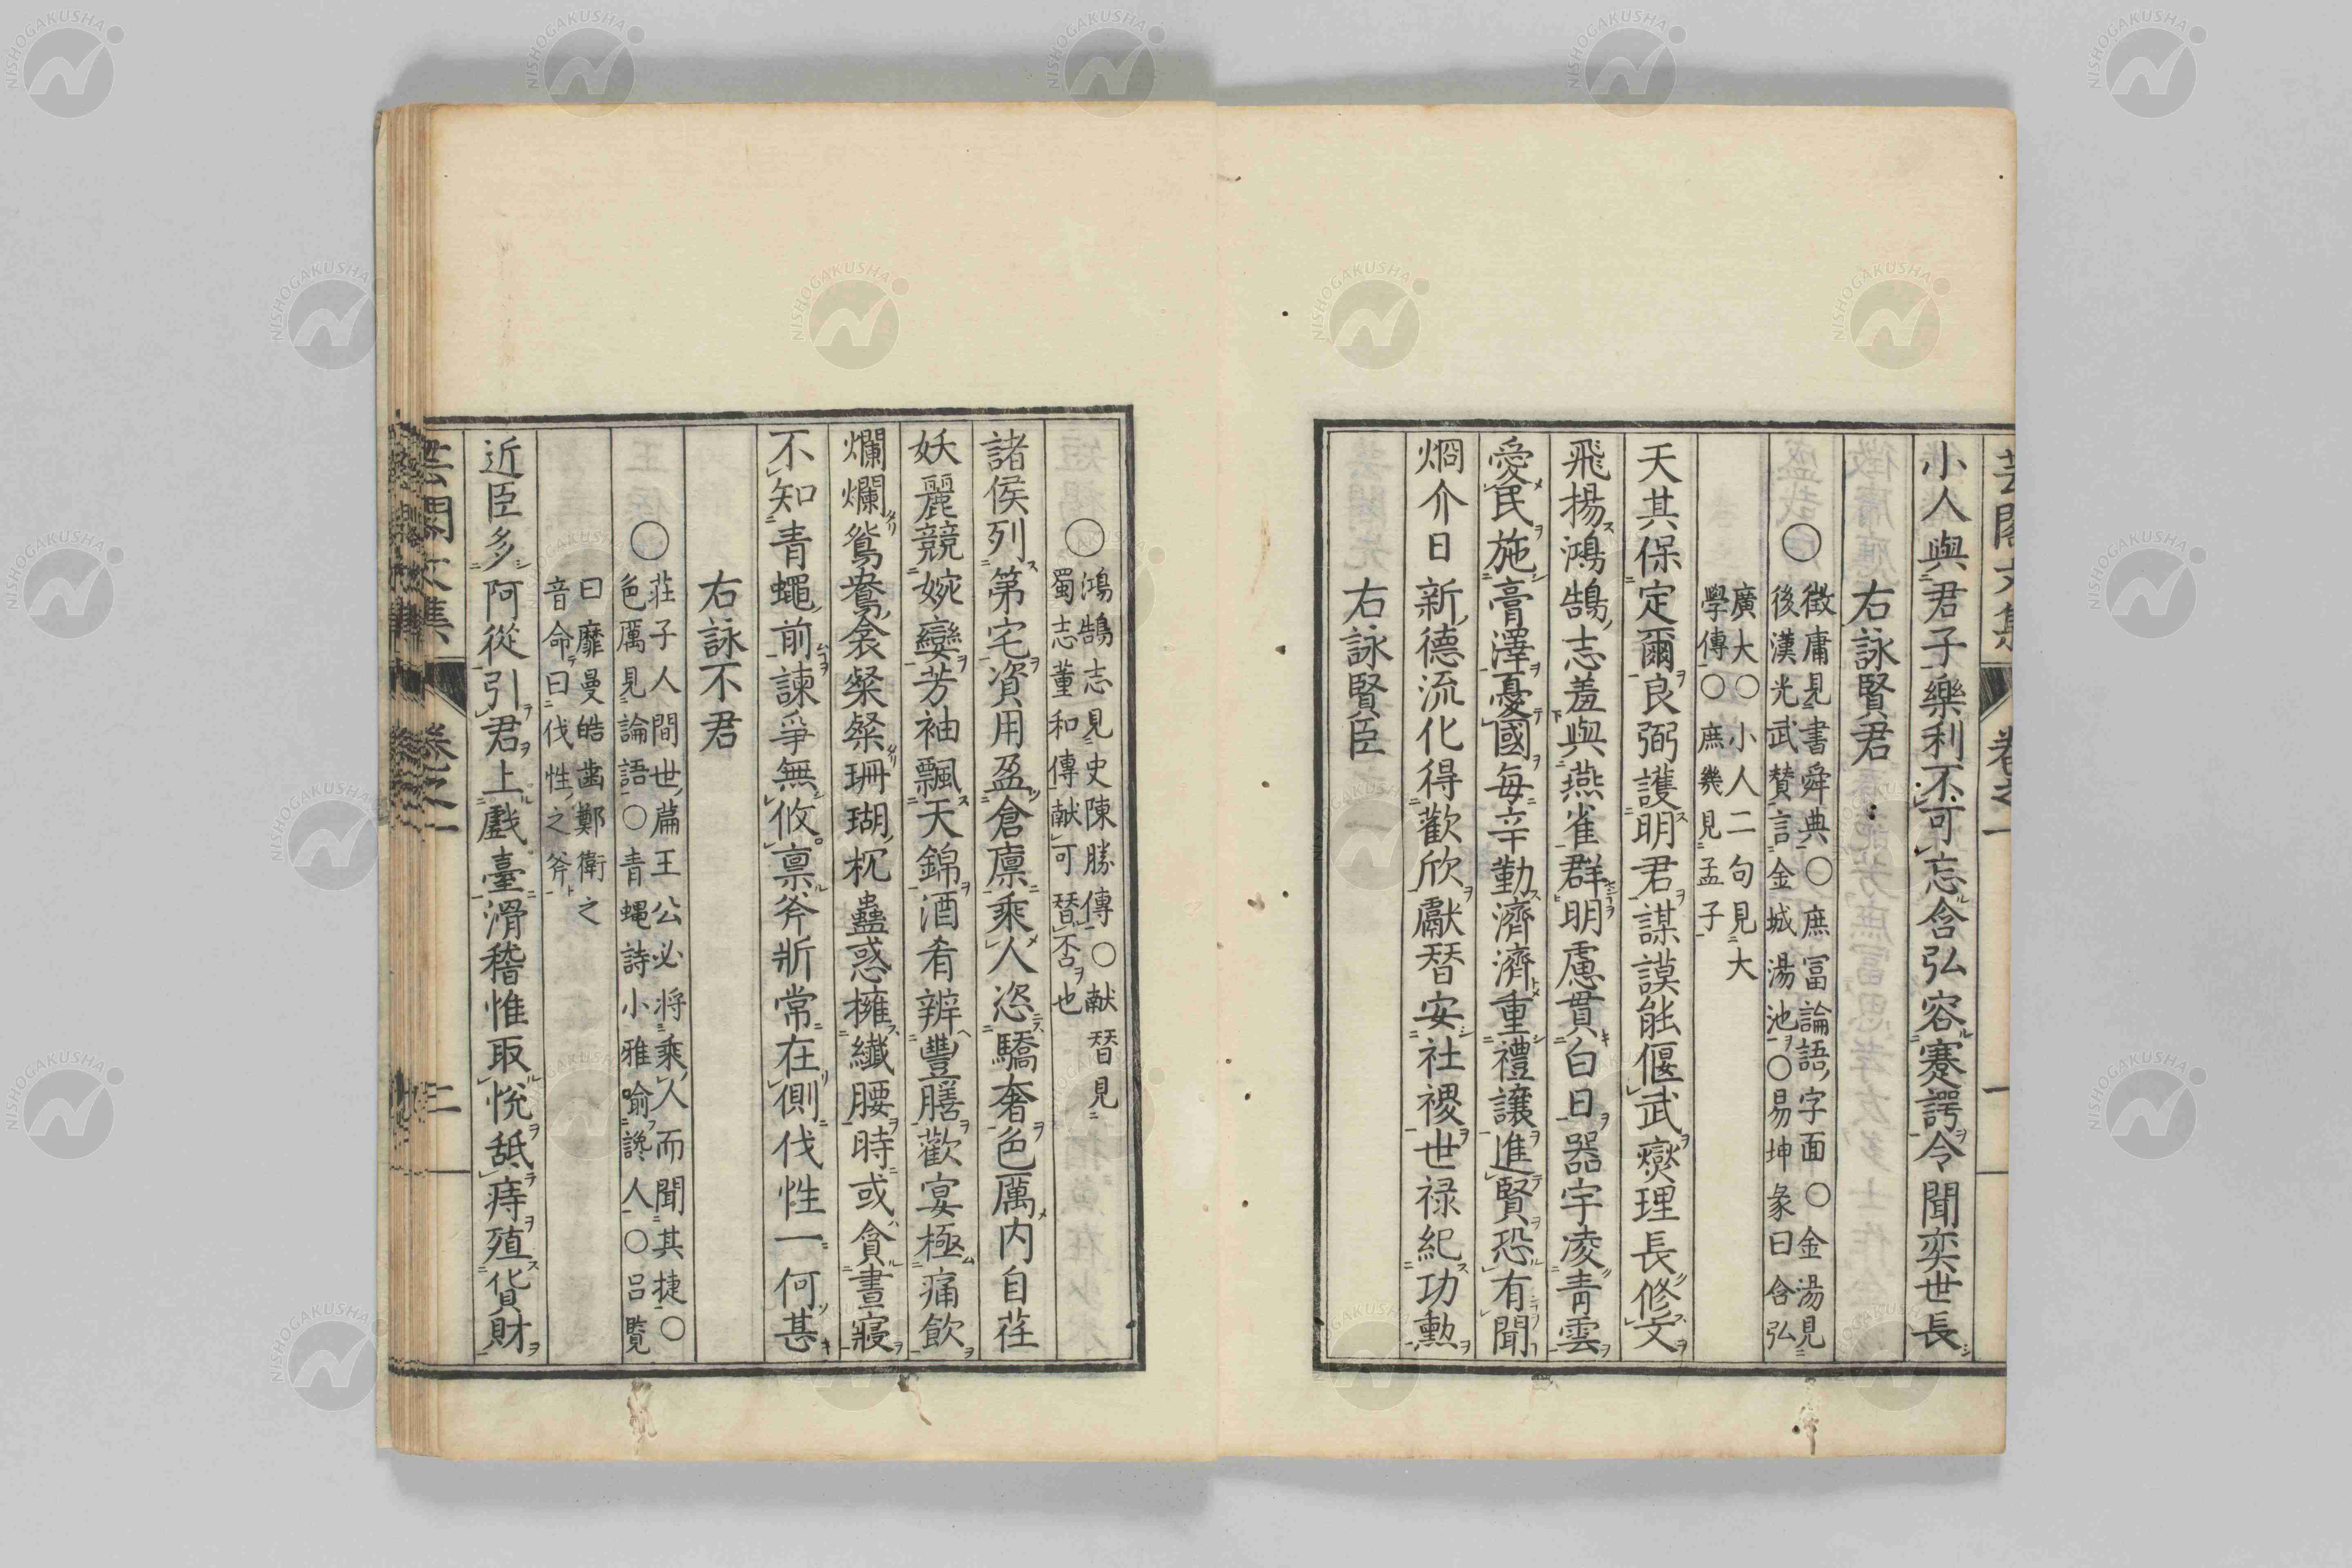 芸閣文集 卷之一
小人與君子樂利不可忘含弘容蹇諤令聞奕世長
右詠賢君
○徵庸見書舜典○庶冨論語字面○金湯見
後漢光武賛言金城湯池○易坤彖曰含弘
廣大○小人二句見大
學傳○庶幾見孟子
天其保定爾良弼護明君謀謨能偃武爕理長修文
飛揚鴻鵠志羞與燕雀群明慮貫白日器宇凌青雲
愛民施膏澤憂國每辛勤濟濟重禮讓進賢恐有聞
烱介日新德流化得歡欣獻替安社稷世禄紀功勲
右詠賢臣
○鴻鵠志見史陳勝傳○献替見
蜀志董和傳献可替否也
諸侯列第宅資用盈倉廩乘人恣驕奢色厲内自荏
妖麗競婉孌芳袖飄天錦酒肴辨豐膳歡宴極痛飲
爛爛鴛鴦衾粲粲珊瑚枕蠱惑擁纖腰時或貪晝寢
不知青蠅前諫爭無攸禀斧斨常在側伐性一何甚
右詠不君
○莊子人間世篇王公必将乘人而聞其捷○
色厲見論語○青蝿詩小雅喻讒人○吕覧
曰靡曼皓齒鄭衛之
音命曰伐性之斧
近臣多阿從引君上戲臺滑稽惟取悦舐痔殖貨財
芸閣文集 卷之一 三
NISHOGAKUSHA